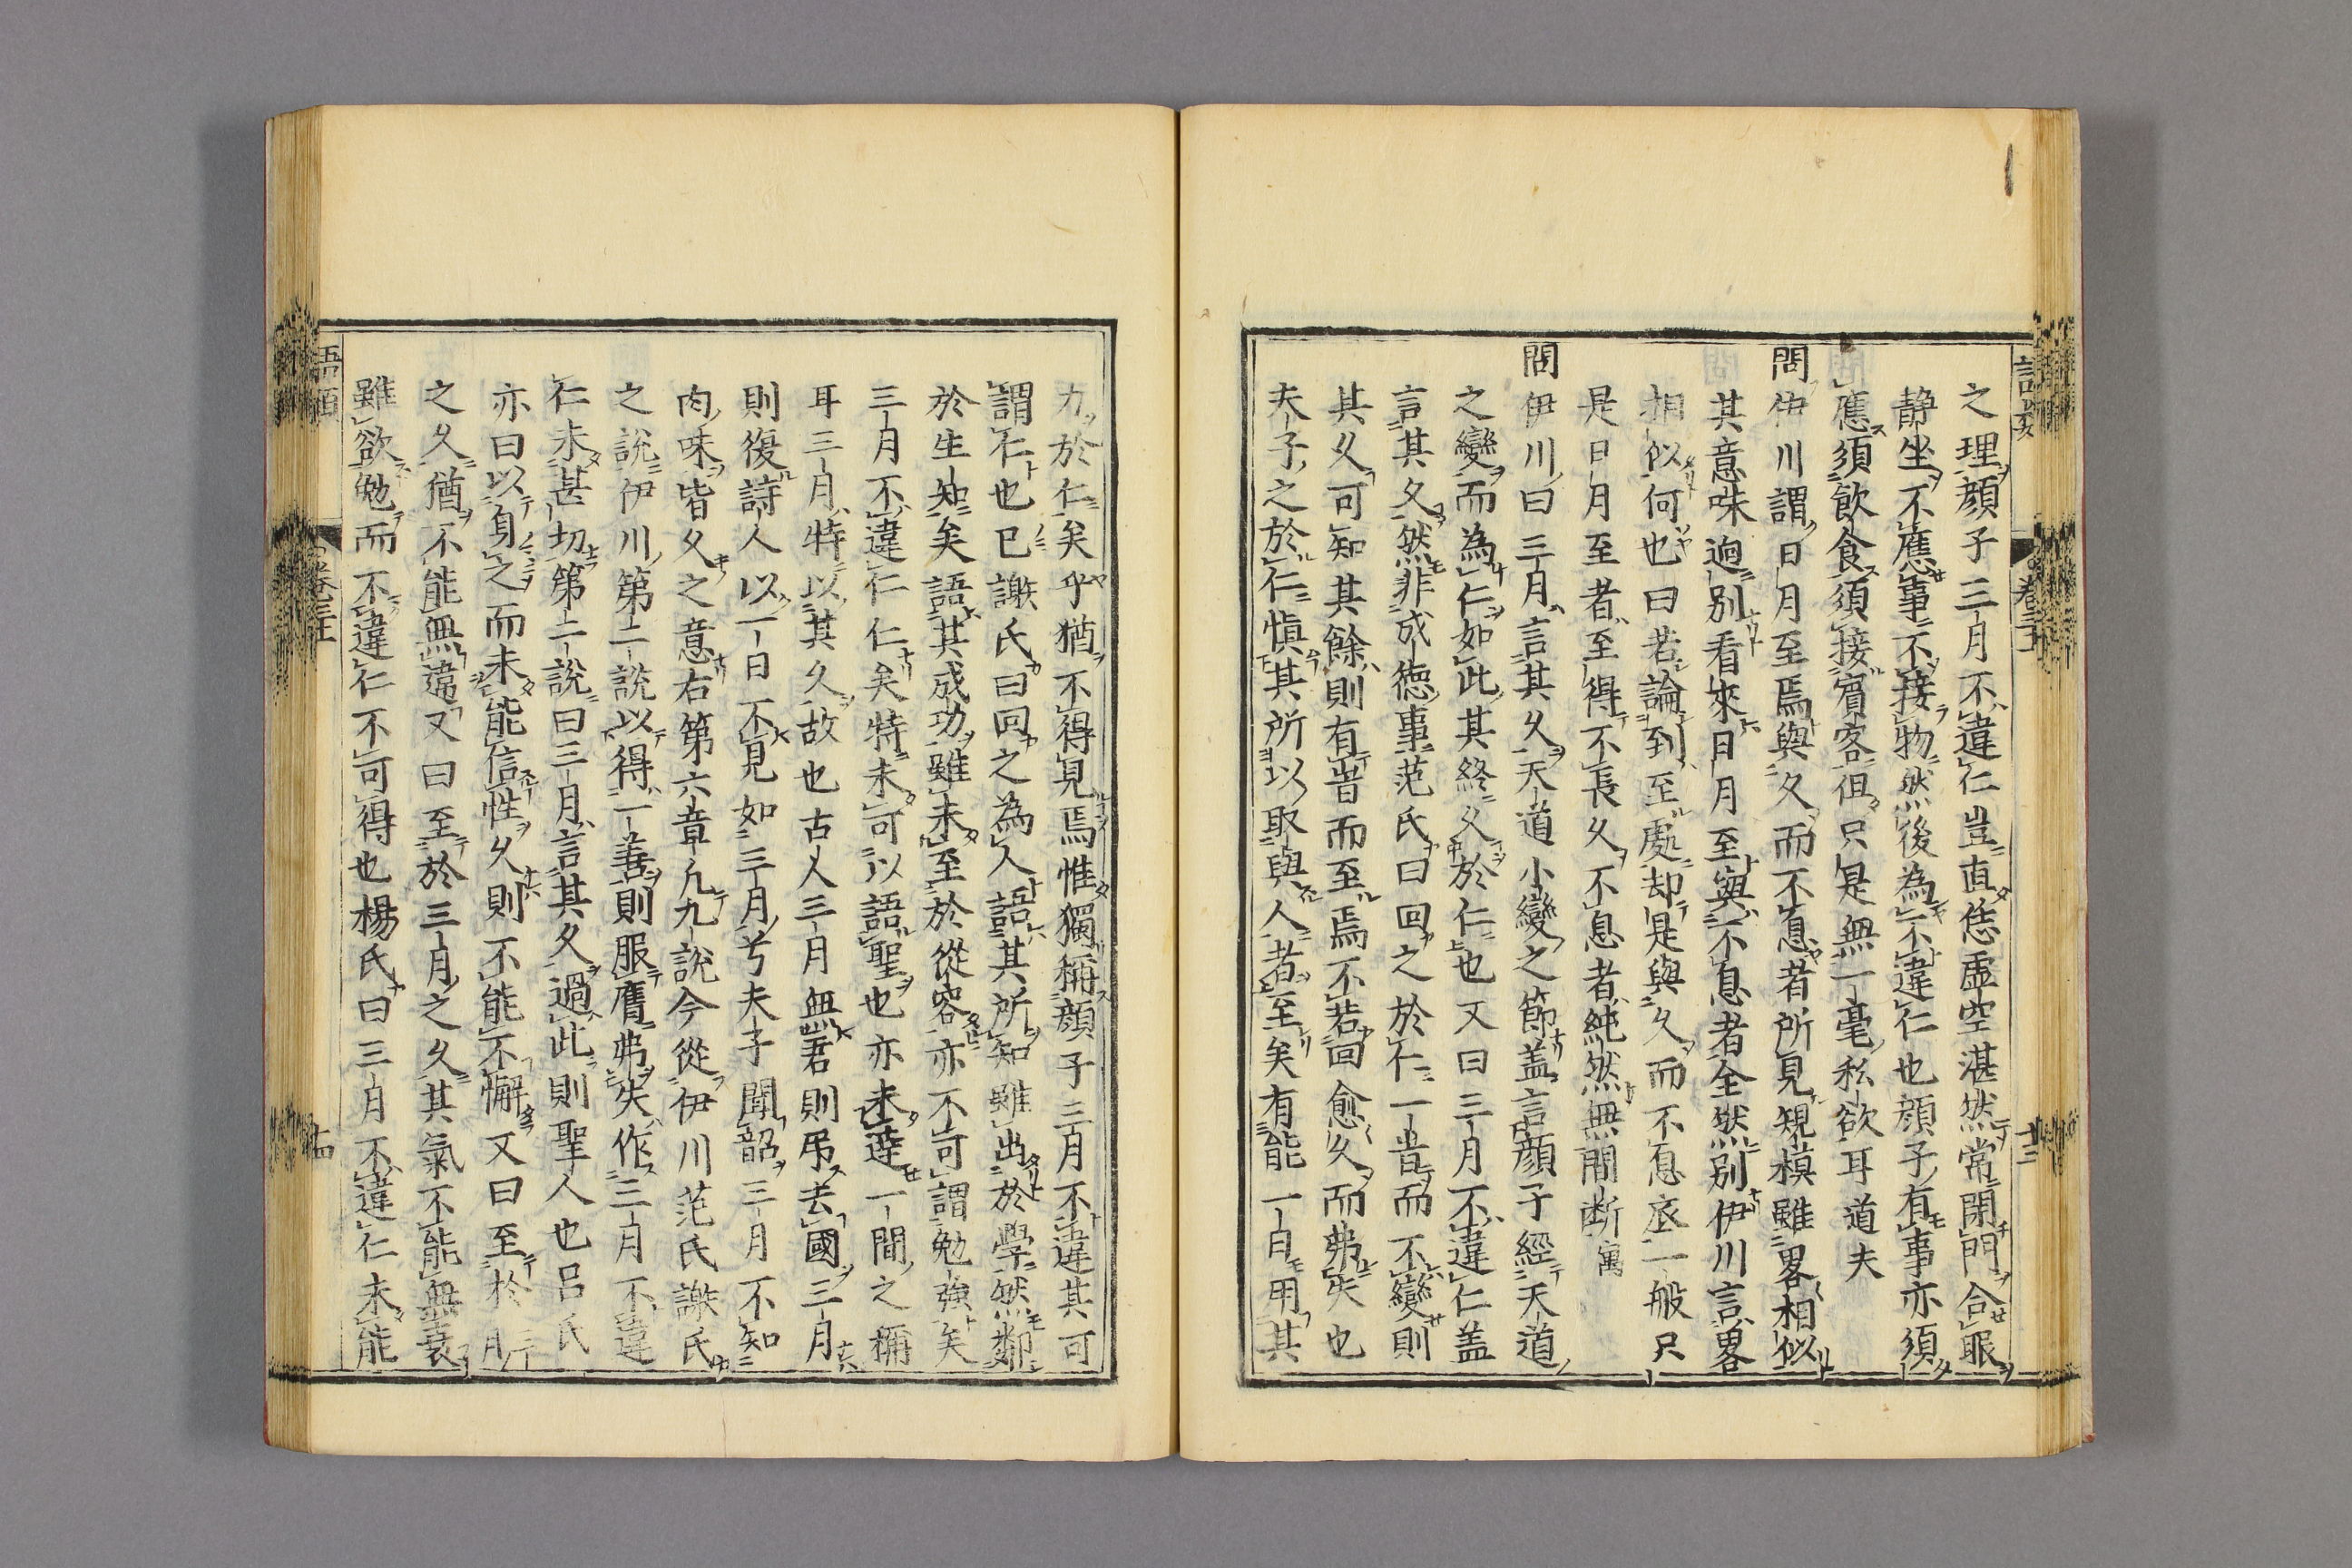 之理顔子三月不違仁豈直恁虚空湛然常閉門合眼
静坐不應事不接物然後為不違仁也顔子有事亦須
應須飲食須接賓客但只是無一毫私欲耳道夫
問伊川謂日月至焉與久而不息者所見規模雖畧相似
其意味逈別看來日月至與不息者全然別伊川言畧
相似何也曰若論到至處却是與久而不息底一般只
是日月至者至得不長久不息者純然無間断㝢
問伊川曰三月言其久天道小變之節盖言顔子經天道
之變而為仁如此其終久於仁也又曰三月不違仁盖
言其久然非成徳事范氏曰回之於仁一旹而不變則
其久可知其餘則有旹而至焉不若回愈久而弗失也
夫子之於仁慎其所以取與人者至矣有能一日用其
力於仁矣乎猶不得見焉惟獨稱顔子三月不違其可
謂仁也已謝氏曰回之為人語其所知雖出於學然鄰
於生知矣語其成功雖未至於從容亦不可謂勉強矣
三月不違仁仁矣特未可以語聖也亦未達一間之稱
耳三月特以其久故也古人三月無君則弔去國三月
則復詩人以一日不見如三月兮夫子聞韶三月不知
肉味皆久之意右第六章凡九說今從伊川范氏謝氏
之說伊川第二說以得一善則服膺弗失作三月不違
仁未甚切第二說曰三月言其久過此則聖人也呂氏
亦曰以身之而未能信性久則不能不懈又曰至於三月
之久猶不能無違又曰至於三月之久其氣不能無衰
雖欲勉而不違仁不可得也楊氏曰三月不違仁未能
語類
卷三十
十四